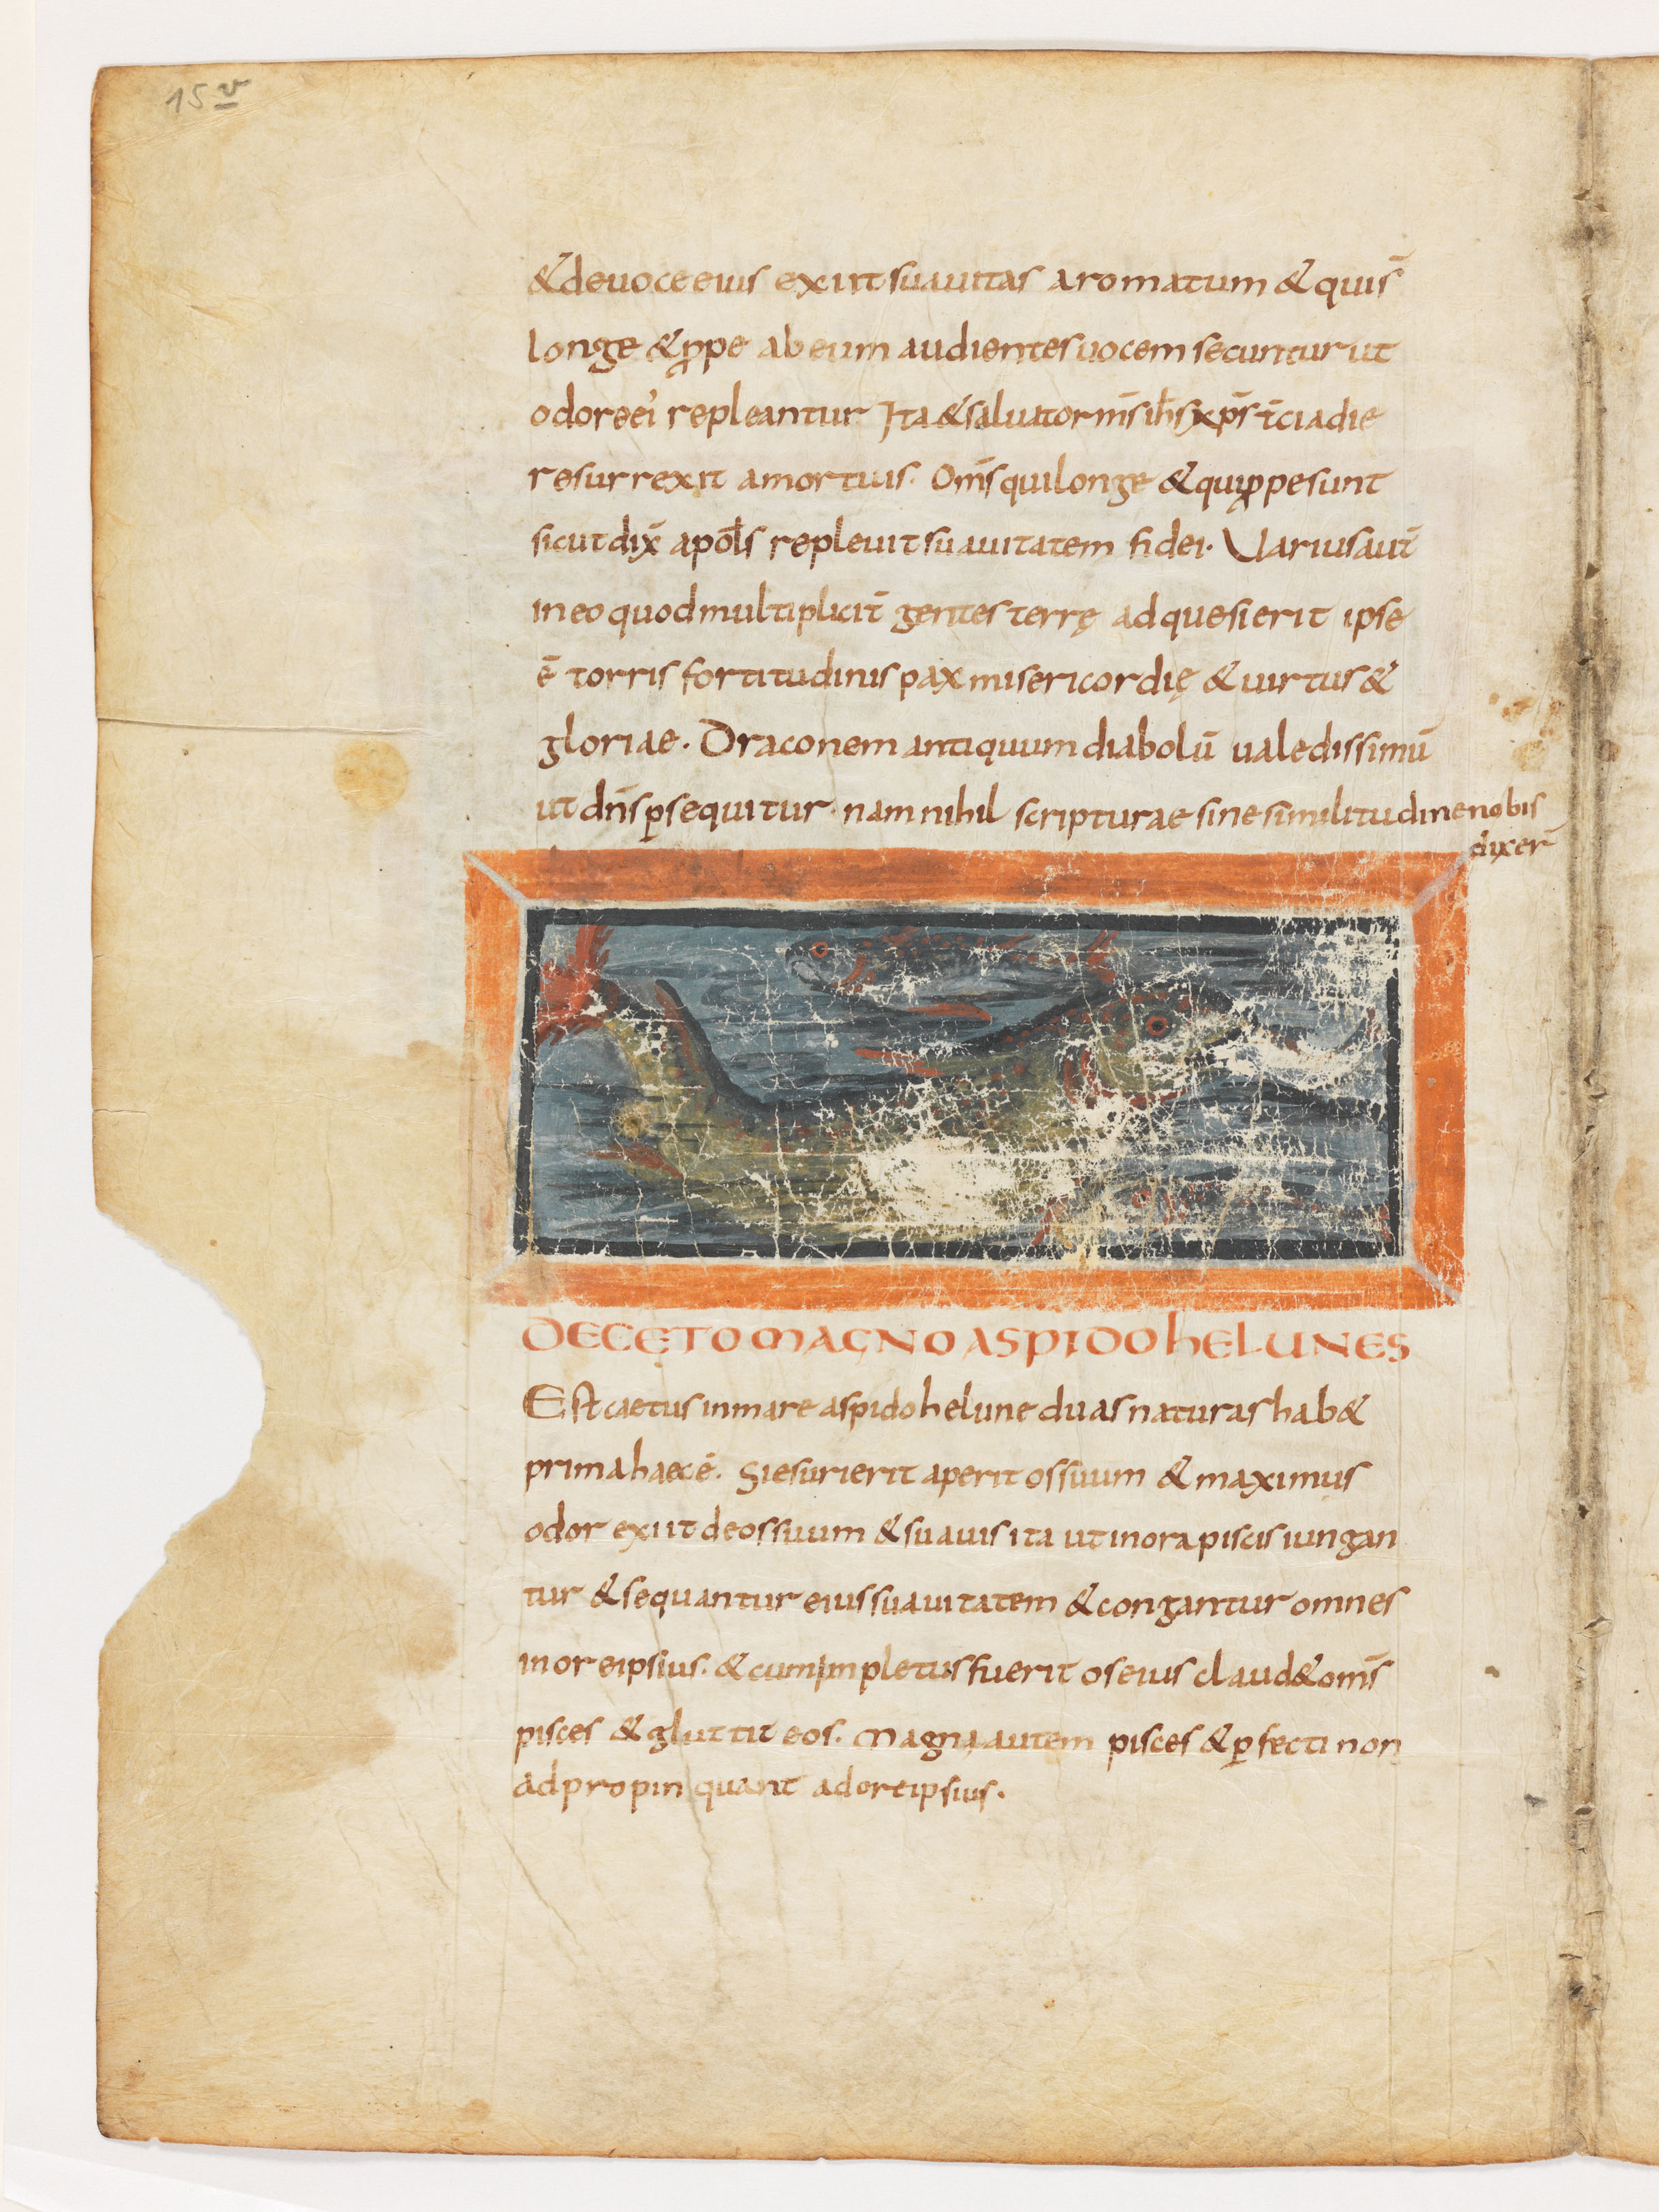 15v
& de uoce eius exiit suauitas aromatum & quis̄
longe & ꝓpe ab eum audientes uocem secuntur ut
odore ei' repleantur Ita & saluator nr̄s ih̄s xp̄s t̄cia die
resurrexit a mortuis. Om̄s qui longe & qui ꝓpe sunt
sicut dix̄ apōls repleuit suauitatem fidei. Uarius aut̄
in eo quod multiplicit̄ gentes terrę adquesierit ipse
ē torris fortitudinis pax misericordię & uirtus &
gloriae. Draconem antiquum diabolū ualedissimū
ut dn̄s ꝑsequitur. nam nihil scripturae sine similitudine nobis
dixer̄
DE CETO MAGNO ASPIDOhELUNES
Est caetus in mare aspidohelune duas naturas hab&
prima haec ē. Si esurierit aperit os suum & maximus
odor exiit de os suum & suauis ita ut in ora piscis iungan
tur & sequantur eius suauitatem & congantur omnes
in ore ipsius. & cum impletus fuerit os eius claud& om̄s
pisces & gluttit eos. Magna autem pisces & ꝑfecti non
adpropinquant ad ore ipsius.